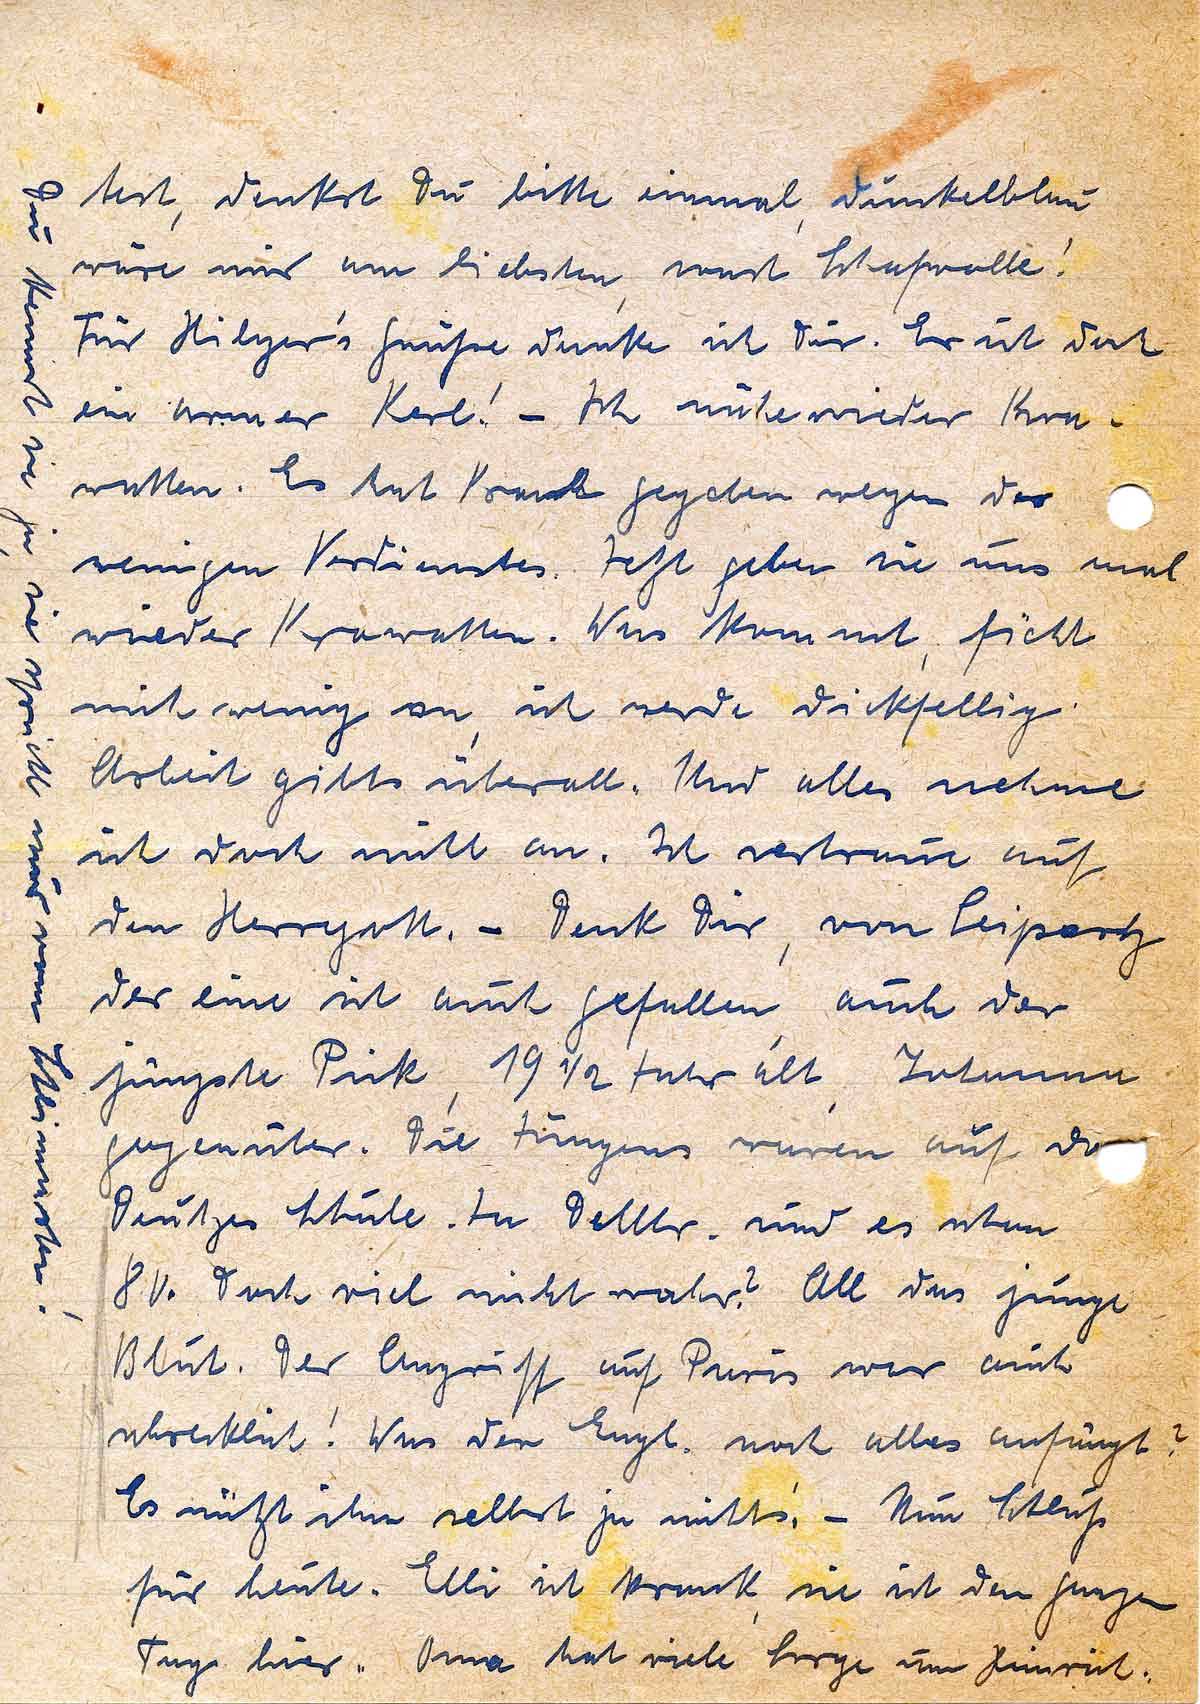 test, denkst Du bitte einmal, dunkelblau
wäre mir am liebsten, sonst Schafwolle!
Für Hilger's Grüße danke ich Dir. Er ist doch
ein armer Kerl! – Ich nähe wieder Kra-
watten. Es hat Krach gegeben wegen des
wenigen Verdienstes. Jetzt geben sie uns mal
wieder Krawatten. Was kommt, ficht
mich wenig an, ich werde dickfellig.
Arbeit gibts überall. Und alles nehme
ich doch nicht an. Ich vertraue auf
den Herrgott. – Denk Dir, von
der eine ist auch gefallen, auch der
jüngste Pick, 19 1/2 Jahr alt, Johanna
gegenüber. Die Jungens waren auf der
Deutzer Schule. In Dellbr. und es schon
80. Doch viel nicht wahr? All das junge
Blut. Der Angriff auf Paris war auch
schrecklich! Was der Engl. noch alles anfängt?
Es nützt ihm selbst ja nichts! – Nun Schluß
für heute. Elli ist krank, sie ist den ganzen
Tag hier. Oma hat viele Sorge um Heinrich.
Du kennst sie ja, sie spricht nur vom Schlimmsten!